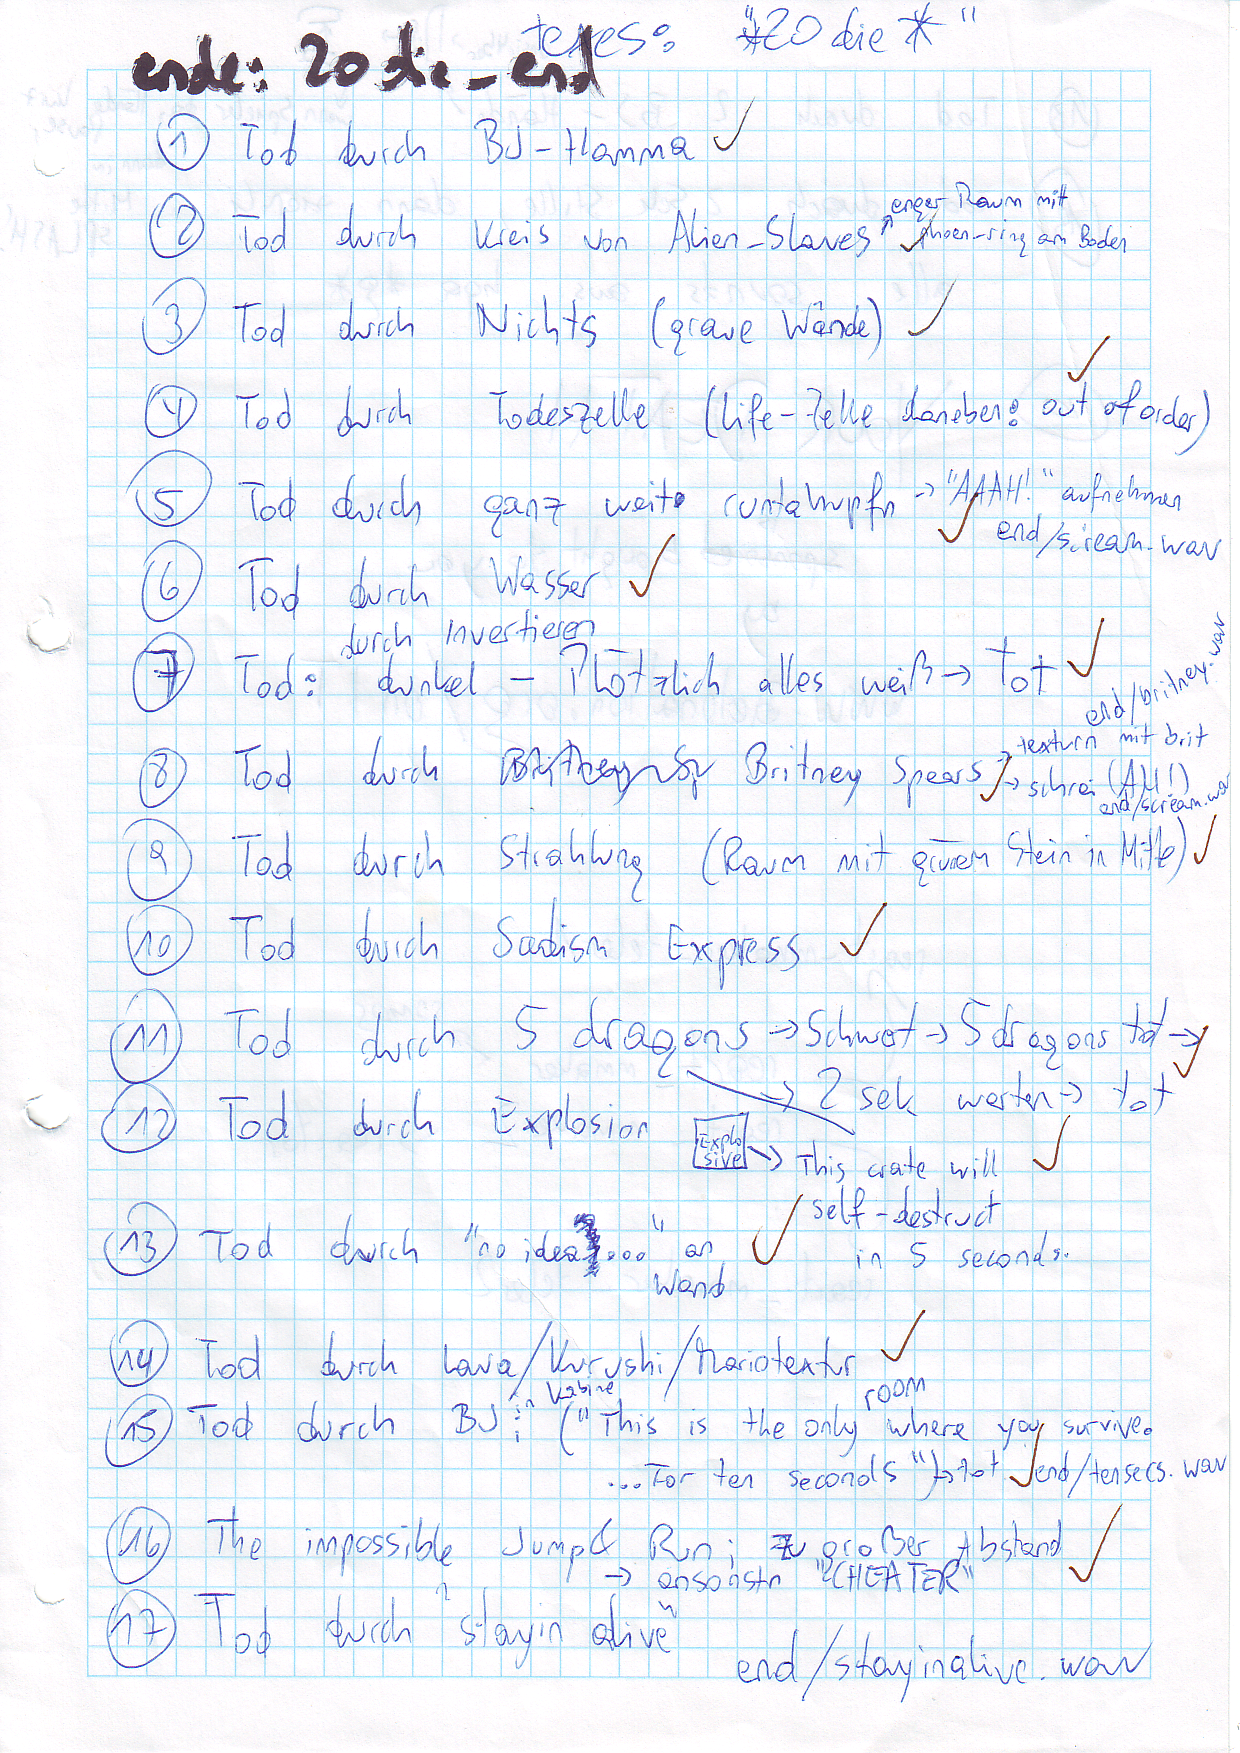 texes: "*20 die *"
ende: 20 die_end
1 Tod durch BJ-Hamma ✓
2 Tod durch Kreis von Alien-Slaves ↗ enger Raum mit
✓ -ring am Boden
3 Tod durch Nichts (graue Wände) ✓
4 Tod durch Todeszelle (Life-Zelle daneben: out of order) ✓
5 Tod durch ganz weit runtahupfn → "AAAH!" aufnehmen
✓ end/scream.wav
6 Tod durch Wasser ✓
durch Invertieren
7 Tod: dunkel - Plötzlich alles weiß → Tot ✓
end/britney.wav
8 Tod durch Britney Spears ✓ → texturn mit brit
→ schrei (AH!)
end/scream.wav
9 Tod durch Strahlung (Raum mit grünem Stein in Mitte) ✓
10 Tod durch Sadism Express ✓
11 Tod durch 5 dragons → Schwert → 5 dragons tot → ✓
→ 2 sek warten → tot
12 Tod durch Explosion
Explo
sive → This crate will ✓
self-destruct
in 5 seconds.
13 Tod durch "no idea...." an ✓
Wand
14 Tod durch Lava/Kurushi/Mariotextur ✓
15 Tod durch BJ in Kabine: ("This is the only room where you survive.
...For ten seconds") → tot ✓ end/tensecs.wav
16 The impossible Jump& Run; zu großer Abstand ✓
→ ansonstn "CHEATER"
17 Tod durch "stayin alive"
end/stayinalive.wav